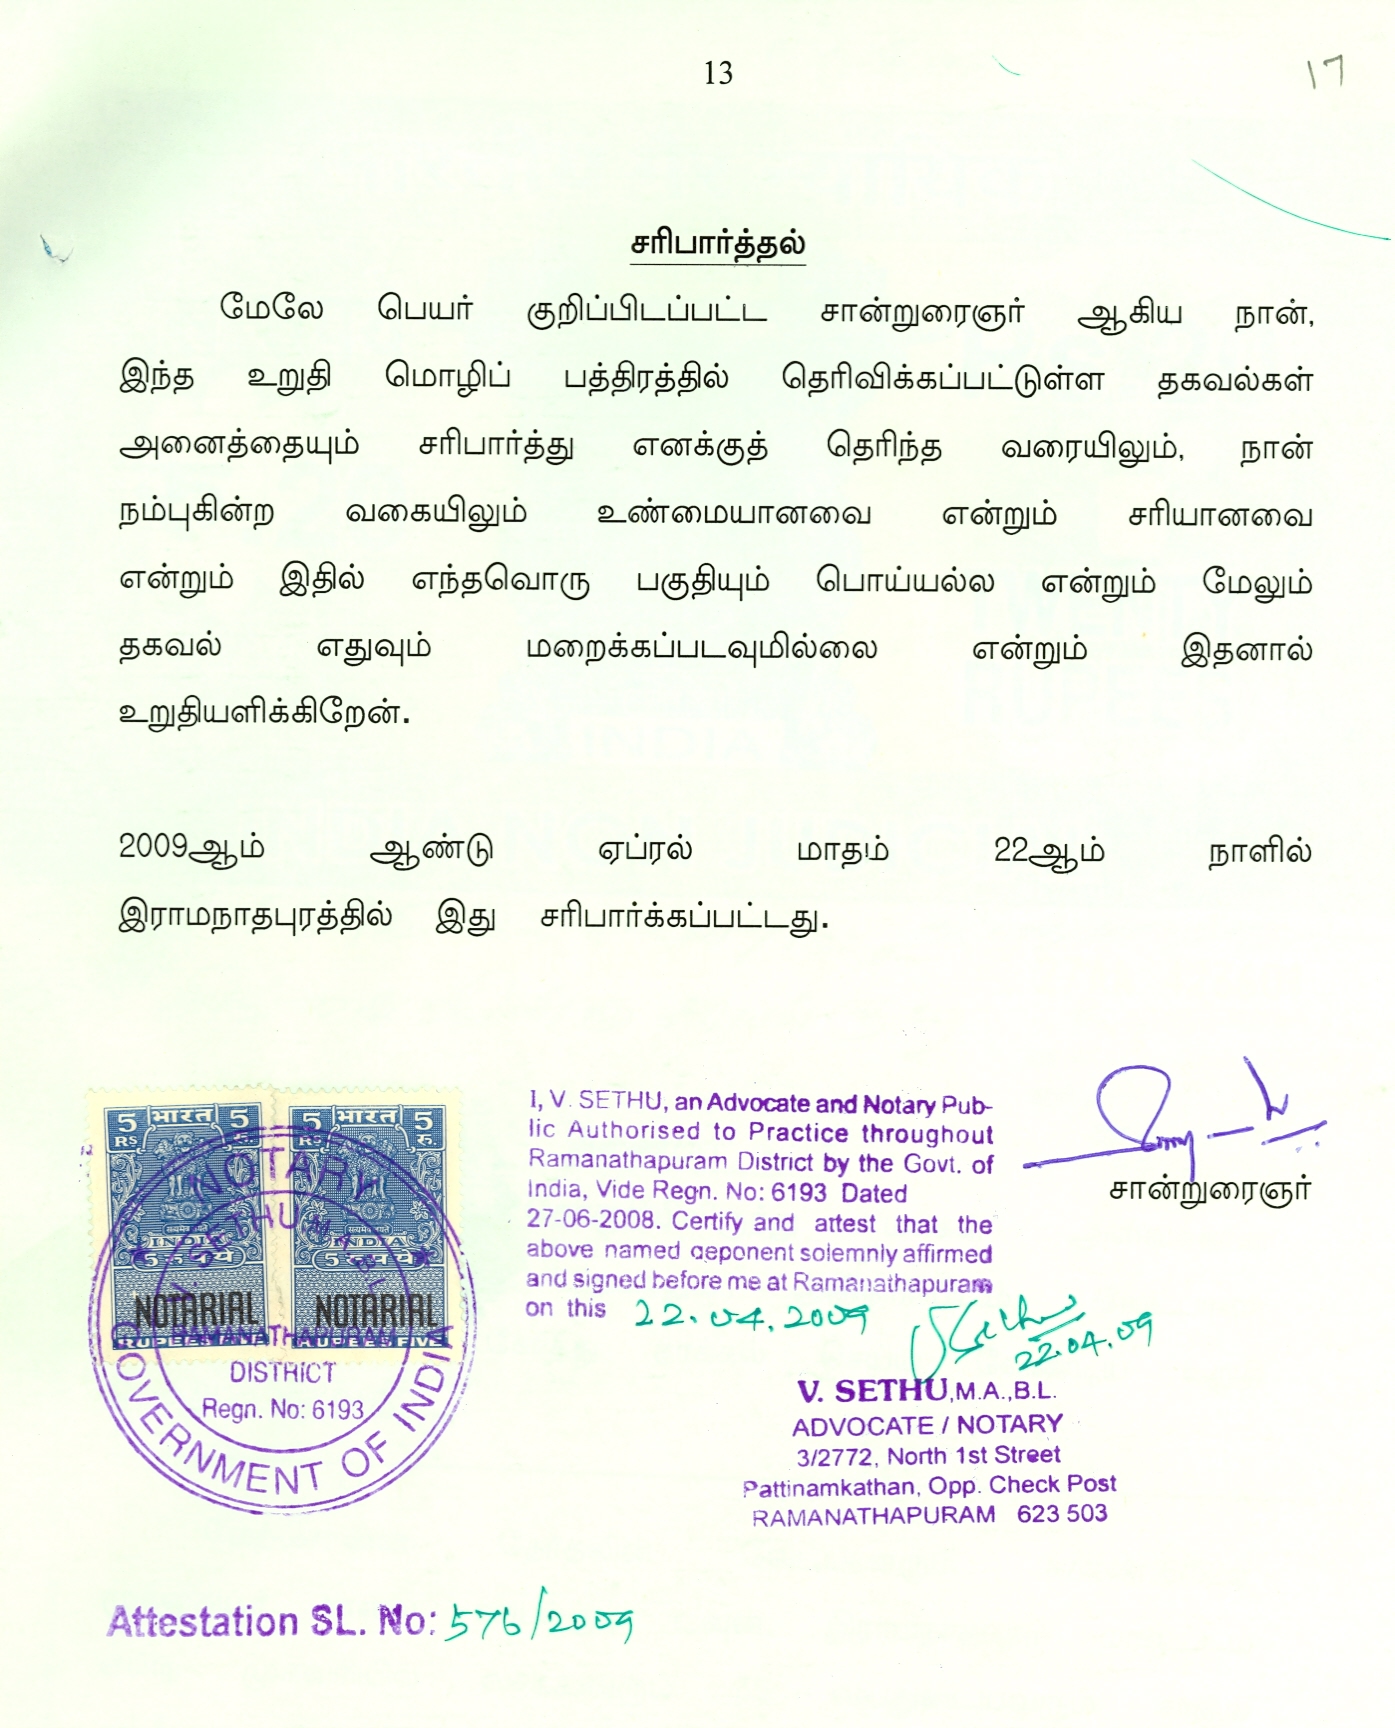 13
17
சரிபார்த்தல்
மேலே பெயர் குறிப்பிடப்பட்ட சான்றுரைஞர் ஆகிய நான்,
இந்த உறுதி மொழிப் பத்திரத்தில் தெரிவிக்கப்பட்டுள்ள தகவல்கள்
அனைத்தையும் சரிபார்த்து எனக்குத் தெரிந்த வரையிலும், நான்
நம்புகின்ற வகையிலும் உண்மையானவை என்றும் சரியானவை
என்றும் இதில் எந்தவொரு பகுதியும் பொய்யல்ல என்றும் மேலும்
தகவல் எதுவும் மறைக்கப்படவுமில்லை என்றும் இதனால்
உறுதியளிக்கிறேன்.
2009ஆம் ஆண்டு ஏப்ரல் மாதம் 22ஆம் நாளில்
இராமநாதபுரத்தில் இது சரிபார்க்கப்பட்டது.
5 भारत 5
RS रु.
INDIA
5 रुपये
NOTARIAL
RUPEES FIVE
5 भारत 5
RS रु.
INDIA
5 रुपये
NOTARIAL
RUPEES FIVE
NOTARY
V. SETHU M.A., B.L.
RAMANATHAPURAM
DISTRICT
Regn. No: 6193
GOVERNMENT OF INDIA
I, V. SETHU, an Advocate and Notary Pub-
lic Authorised to Practice throughout
Ramanathapuram District by the Govt. of
India, Vide Regn. No: 6193 Dated
27-06-2008. Certify and attest that the
above named deponent solemnly affirmed
and signed before me at Ramanathapuram
on this 22.04.2009
சான்றுரைஞர்
V Sethu
22.04.09
V. SETHU, M.A., B.L.
ADVOCATE / NOTARY
3/2772, North 1st Street
Pattinamkathan, Opp. Check Post
RAMANATHAPURAM 623 503
Attestation SL. No: 576/2009